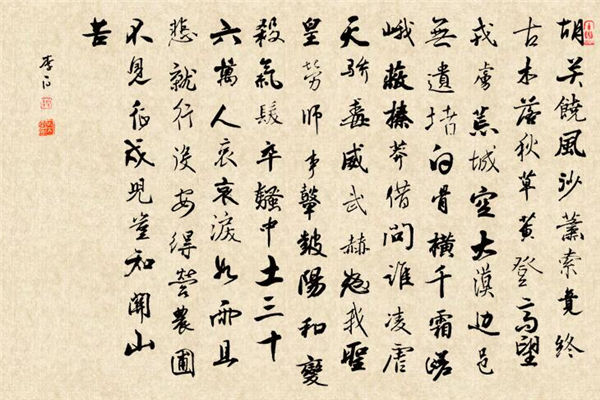 胡关饒風沙蕭索竟終
古木落秋草黄登高望
戎虜荒城空大漠边邑
無遺堵白骨橫千霜嵯
峨蔽榛莽借問誰凌虐
天驕毒威武赫怒我聖
皇勞師事鼙皷陽和變
殺氣髮卒騷中土三十
六萬人哀哀淚如雨且
悲就行役安得營農圃
不見征戍兒豈知關山
苦